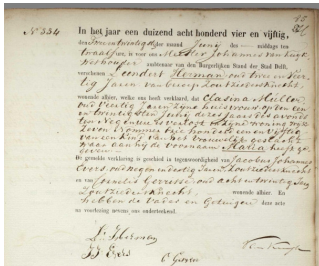 No 334
In het jaar een duizend acht honderd vier en vijftig,
den Drieentwintigsten der maand Juny des middags ten
twaalf ure, is voor ons Meester Johannes van
Wethouder ambtenaar van den Burgerlijken Stand der Stad Delft,
verschenen Leendert Herman oud twee en Veer
tig Jaren van beroep Loodziedersknecht
wonende alhier, welke ons heeft verklaard, dat Clasina Muller
oud Veertig Jaren zijne huisvrouw op den een
en twintigsten Juny dezes jaars des avonds
ten Negen ure verlost is in zijne woning Wijk
Zeven Nommer honderd een en Vijftig
van een Kind van het Vrouwelijk geslacht
waaraan hij de voornaam Maria heeft ge
geven
De gemelde verklaring is geschied in tegenwoordigheid van Jacobus Johannes
Evers oud Negenendertig Jaren, Loodziedersknecht
en van Cornelis Gerresse oud acht en twintig Jaren
Loodziedersknecht wonende alhier. En
hebben de Vader en Getuigen deze acte
na voorlezing nevens ons onderteekend.
L. Herman
JJ Evers